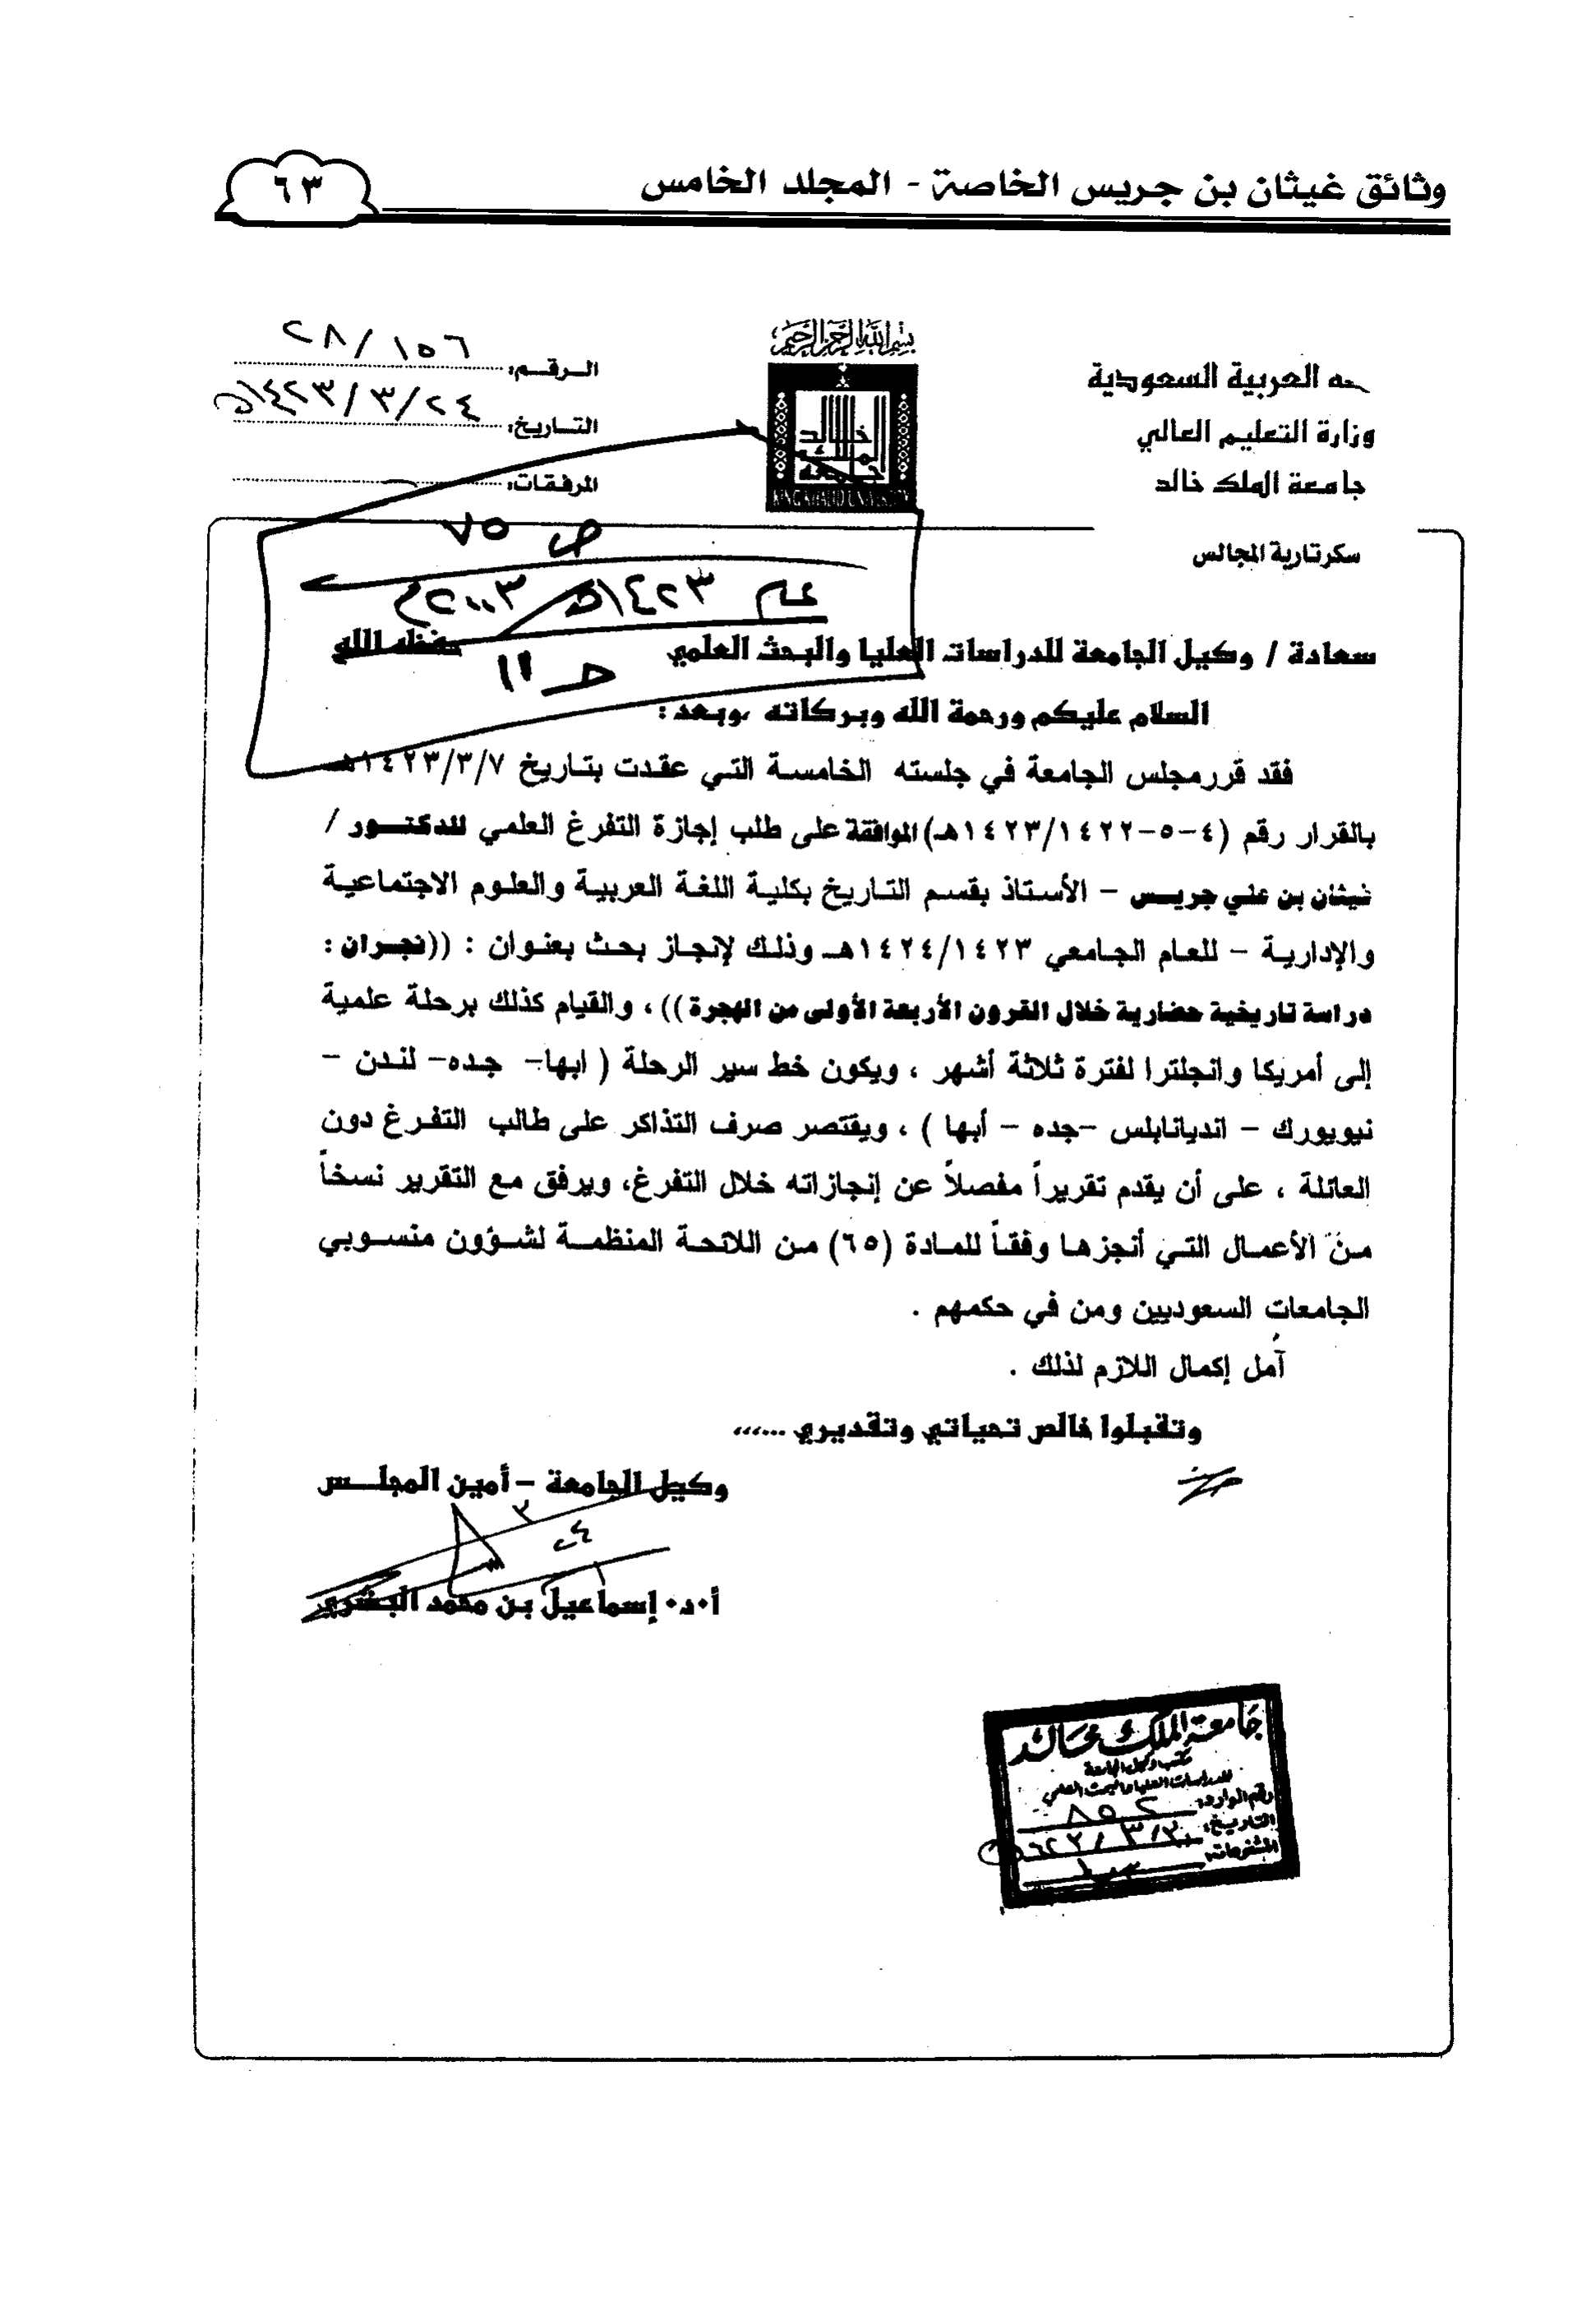 وثائق غيثان بن جريس الخاصة - المجلد الخامس
٦٣
بسم الله الرحمن الرحيم
العربية السعودية
وزارة التعليم العالي
جامعة الملك خالد
سكرتارية المجالس
الرقم: ٢٨/١٥٦
التاريخ: ٢٤/٣/١٤٢٣هـ
المرفقات:
ص ٧٥
عام ١٤٢٣هـ/٢٠٠٣م
حـ ١١
سعادة / وكيل الجامعة للدراسات العليا والبحث العلمي حفظه الله
السلام عليكم ورحمة الله وبركاته ،وبعد :
فقد قرر مجلس الجامعة في جلسته الخامسة التي عقدت بتاريخ ١٤٢٣/٣/٧هـ
بالقرار رقم (٤-٥-١٤٢٣/١٤٢٢هـ) الموافقة على طلب إجازة التفرغ العلمي للدكتـور /
غيثان بن علي جريـس - الأستاذ بقسم التاريخ بكلية اللغة العربية والعلوم الاجتماعية
والإدارية - للعام الجامعي ١٤٢٤/١٤٢٣هـ وذلك لإنجاز بحث بعنوان : ((نجران :
دراسة تاريخية حضارية خلال القرون الأربعة الأولى من الهجرة)) ، والقيام كذلك برحلة علمية
إلى أمريكا وانجلترا لفترة ثلاثة أشهر ، ويكون خط سير الرحلة ( ابها- جده- لندن -
نيويورك - انديانابلس -جده - أبها ) ، ويقتصر صرف التذاكر على طالب التفرغ دون
العائلة ، على أن يقدم تقريراً مفصلاً عن إنجازاته خلال التفرغ، ويرفق مع التقرير نسخاً
من الأعمال التي أنجزها وفقاً للمادة (٦٥) من اللائحة المنظمة لشؤون منسوبي
الجامعات السعوديين ومن في حكمهم .
آمل إكمال اللازم لذلك .
وتقبلوا خالص تحياتي وتقديري ...،،،
وكيل الجامعة - أمين المجلـس
أ.د. إسماعيل بن محمد البشري
جامعة الملك خالد
مكتب وكيل الجامعة
للدراسات العليا والبحث العلمي
رقم الوارد: ٨٥٢
التاريخ:
المشفوعات: